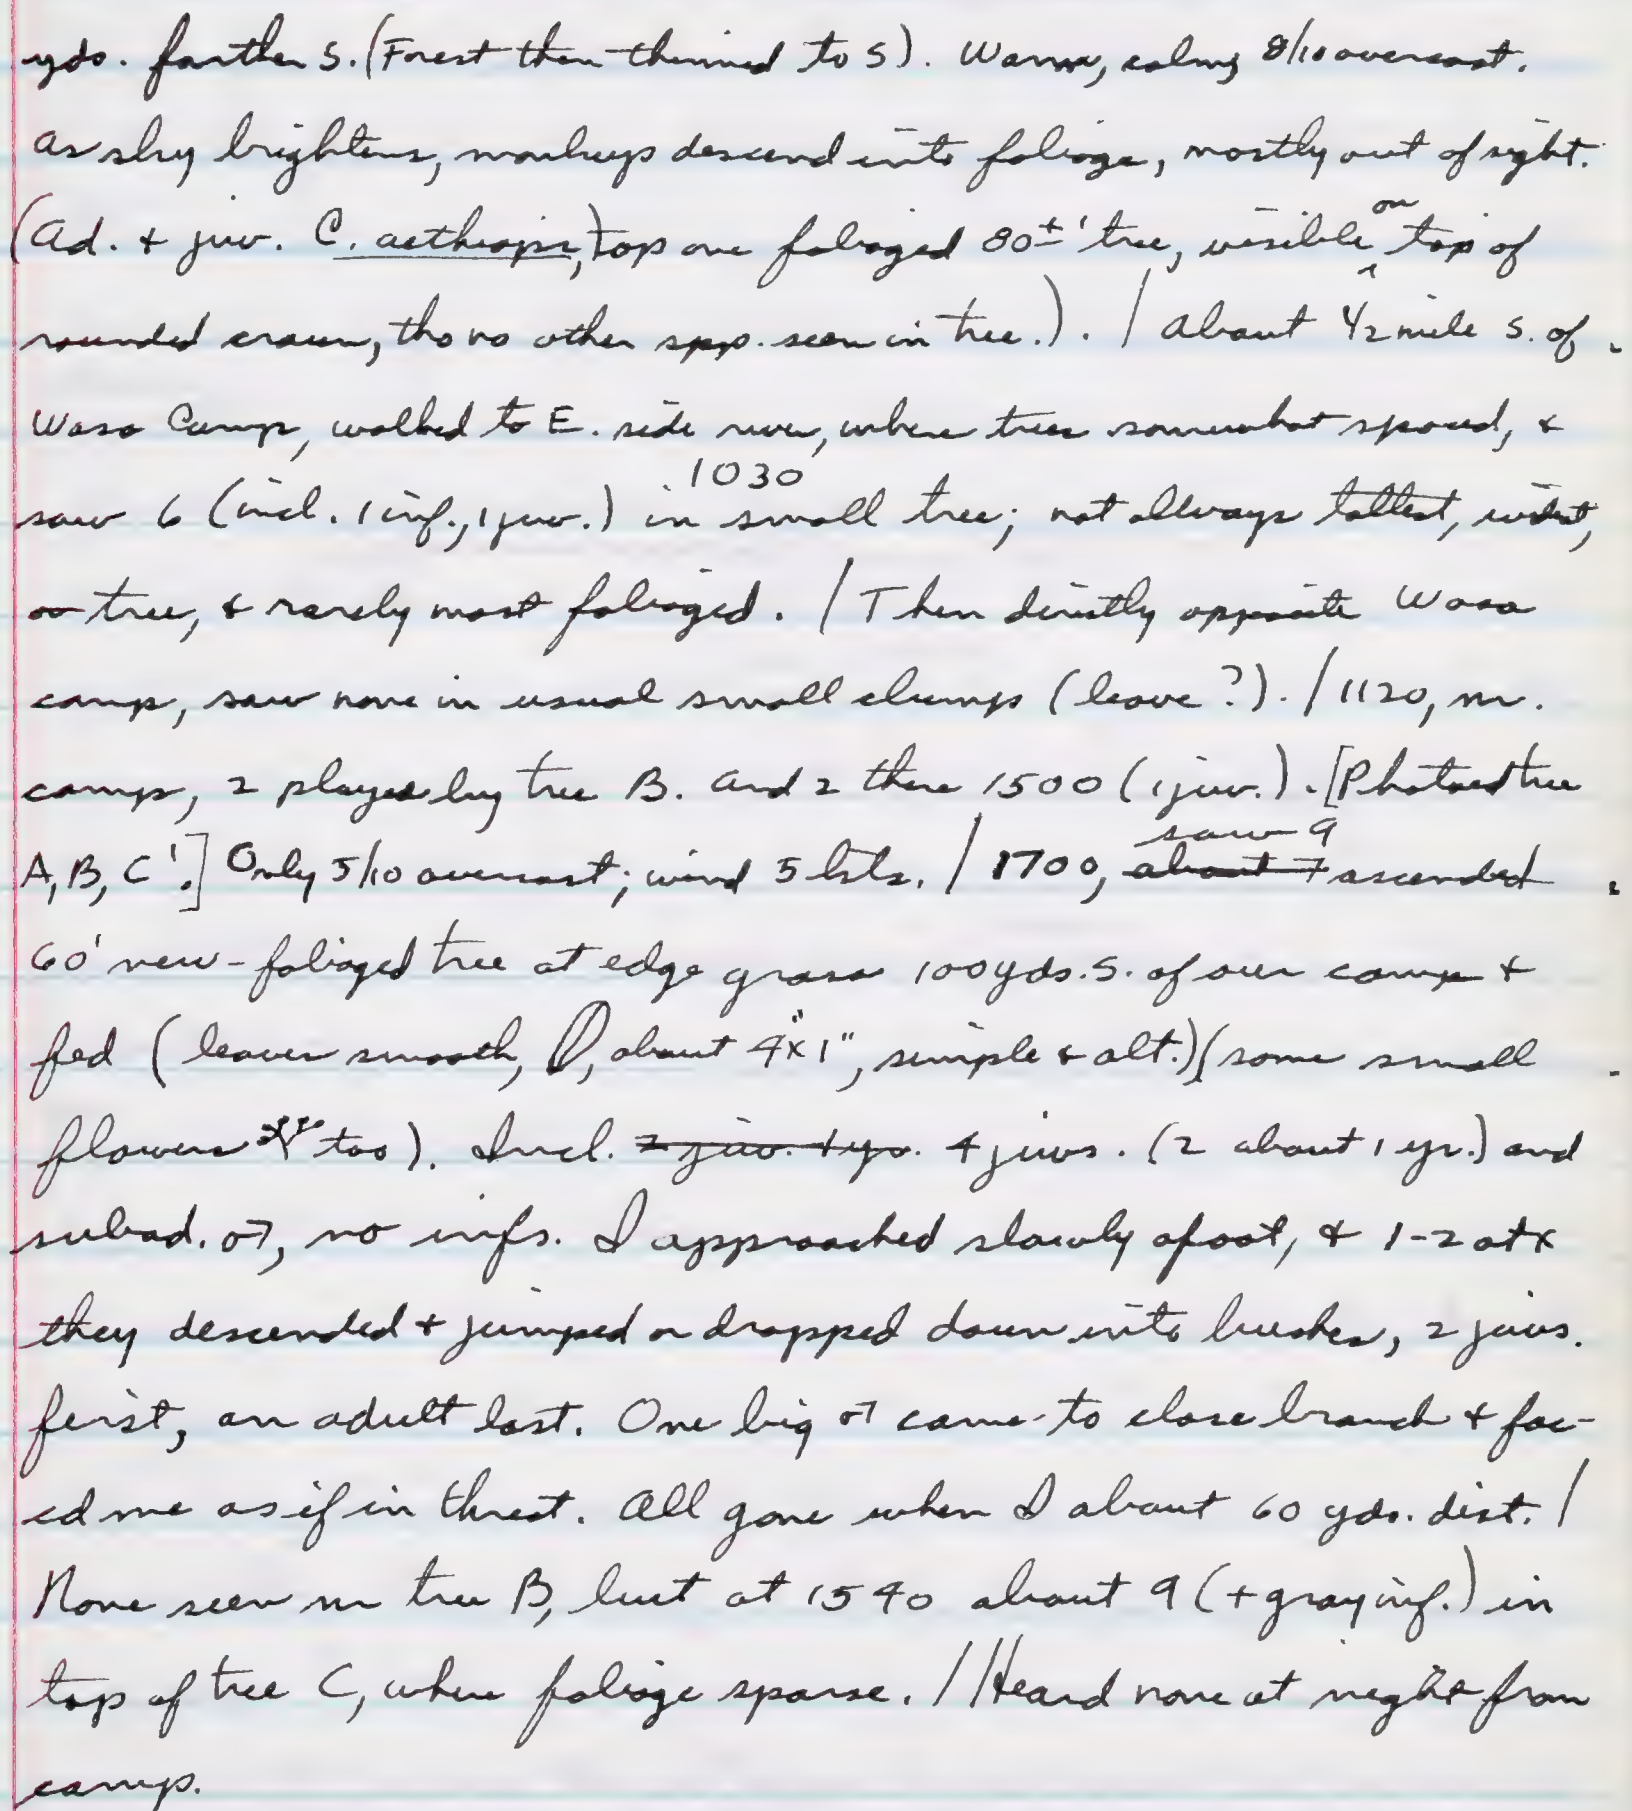 yds. farther S. (Forest then thinned to S). Warm, calm, 8/10 overcast.
As sky brightens, monkeys descend into foliage, mostly out of sight.
(Ad. + juv. C. aethiops, top one foliaged 80±' tree, visible on top of
rounded crown, tho no other spp. seen in tree.). / About 1/2 mile S. of
Waso Camp, walked to E. side river, where trees somewhat spaced, &
saw 6 (incl. 1 inf., 1 juv.) 1030 in small tree; not always tallest, widest,
tree, & rarely most foliaged. / Then directly opposite Waso
camp, saw none in usual small clumps (leave?). / 1120, nr.
camp, 2 played by tree B. And 2 there 1500 (1 juv.). [Photoed tree
A, B, C'.] Only 5/10 overcast; wind 5 kts. / 1700, about 7 saw 9 ascended
60' new-foliaged tree at edge grass 100 yds. S. of our camp &
fed (leaves smooth, about 4"x1", simple & alt.) (some small
flowers too). Incl. 2 juv. 1 yr. 4 juvs. (2 about 1 yr.) and
subad. ♂, no infs. I approached slowly afoot, & 1-2 at x
they descended + jumped or dropped down into bushes, 2 juvs.
first, an adult last. One big ♂ came to close branch + fac-
ed me as if in threat. All gone when I about 60 yds. dist. /
None seen nr tree B, but at 1540 about 9 (+ gray inf.) in
top of tree C, where foliage sparse. // Heard none at night from
camp.